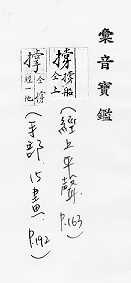 彙音寶鑑
撐
撐船
仝上
(經上平聲 P.163)
撑
仝撐
經一他
(手部、15畫 P.192)